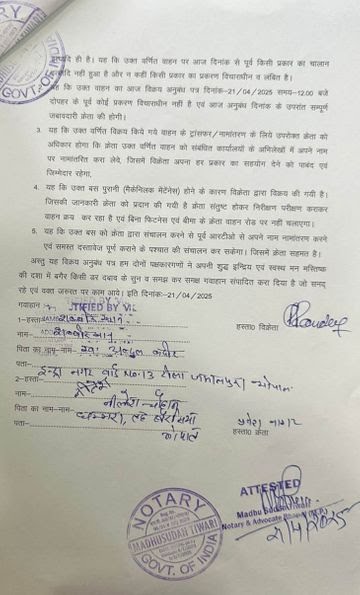 इत्यादि ही है। यह कि उक्त वर्णित वाहन पर आज दिनांक से पूर्व किसी प्रकार का चालान
नहीं हुआ है और न कहीं किसी प्रकार का प्रकरण विचाराधीन व लंबित है।
यह कि उक्त वाहन का आज विक्रय अनुबंध पत्र दिनांक-21/04/2025 समय-12.00 बजे
दोपहर के पूर्व कोई प्रकरण विचाराधीन नहीं है एवं आज अनुबंध दिनांक के उपरांत सम्पूर्ण
जबावदारी क्रेता की होगी।
3. यह कि उक्त वर्णित विक्रय किये गये वाहन के ट्रांसफर/नामांतरण के लिये उपरोक्त क्रेता को
अधिकार होगा कि क्रेता उक्त वर्णित वाहन को संबंधित कार्यालयों के अभिलेखों में अपने नाम
पर नामांतरित करा लेवे, जिसमें विक्रेता अपना हर प्रकार का सहयोग देने को पाबंद एवं
जिम्मेदार रहेगा,
4. यह कि उक्त बस पुरानी (मैकेनिलक मेंटेनेस) होने के कारण विक्रेता द्वारा विक्रय की गयी है।
जिसकी जानकारी क्रेता को प्रदान की गयी है क्रेता संतुष्ट होकर निरीक्षण परीक्षण कराकर
वाहन क्रय कर रहा है एवं बिना फिटनेस एवं बीमा के क्रेता वाहन रोड पर नहीं चलाएगा।
5. यह कि उक्त बस को क्रेता द्वारा संचालन करने से पूर्व आरटीओ से अपने नाम नामांतरण कराने
एवं समस्त दस्तावेज पूर्ण कराने के पश्चात ही संचालन कर सकेगा। जिसमें क्रेता सहमत है।
अस्तु यह विक्रय अनुबंध पत्र हम दोनों पक्षकारगणों ने अपनी शुद्ध इन्द्रिय एवं स्वस्थ मन मस्तिष्क
की दशा में बगैर किसी डर दबाव के सुन व समझ कर समक्ष गवाहान संपादित करा दिया है जो सनद
रहे एवं वक्त जरुरत पर काम आवे। इति दिनांक:-21/04/2025
गवाहान
1-हस्ता
हस्ता0 विक्रेता
नाम-
पिता का नाम- अब्दुल
पता- इन्द्रा नगर वार्ड NO.13 भोपाल
2-हस्ता-
नाम-
पिता का नाम-
पता- भोपाल
हस्ता0 क्रेता
ATTESTED
Madhu Sudan Tiwari
Notary & Advocate
21/4/2025
NOTARY
MADHUSUDAN TIWARI
GOVT. OF INDIA
NOTARY
GOVT. OF INDIA